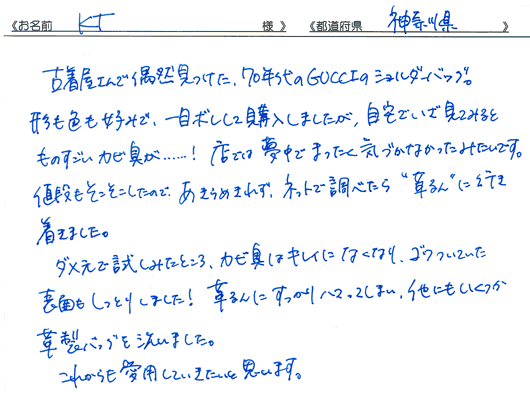 《お名前 KT 様》 《都道府県 神奈川県 》
古着屋さんで偶然見つけた、70年代のGUCCIのショルダーバッグ。
形も色も好みで、一目ボレして購入しましたが、自宅でいざ見てみると
ものすごいカビ臭が……！ 店では夢中でまったく気づかなかったみたいです。
値段もそこそこしたので、あきらめきれず、ネットで調べたら"革るん"に行き
着きました。
ダメ元で試しみたところ、カビ臭はキレイになくなり、ゴワついていた
表面もしっとりしました！ 革るんにすっかりハマってしまい、他にもいくつか
革製バッグを洗いました。
これからも愛用していきたいと思います。